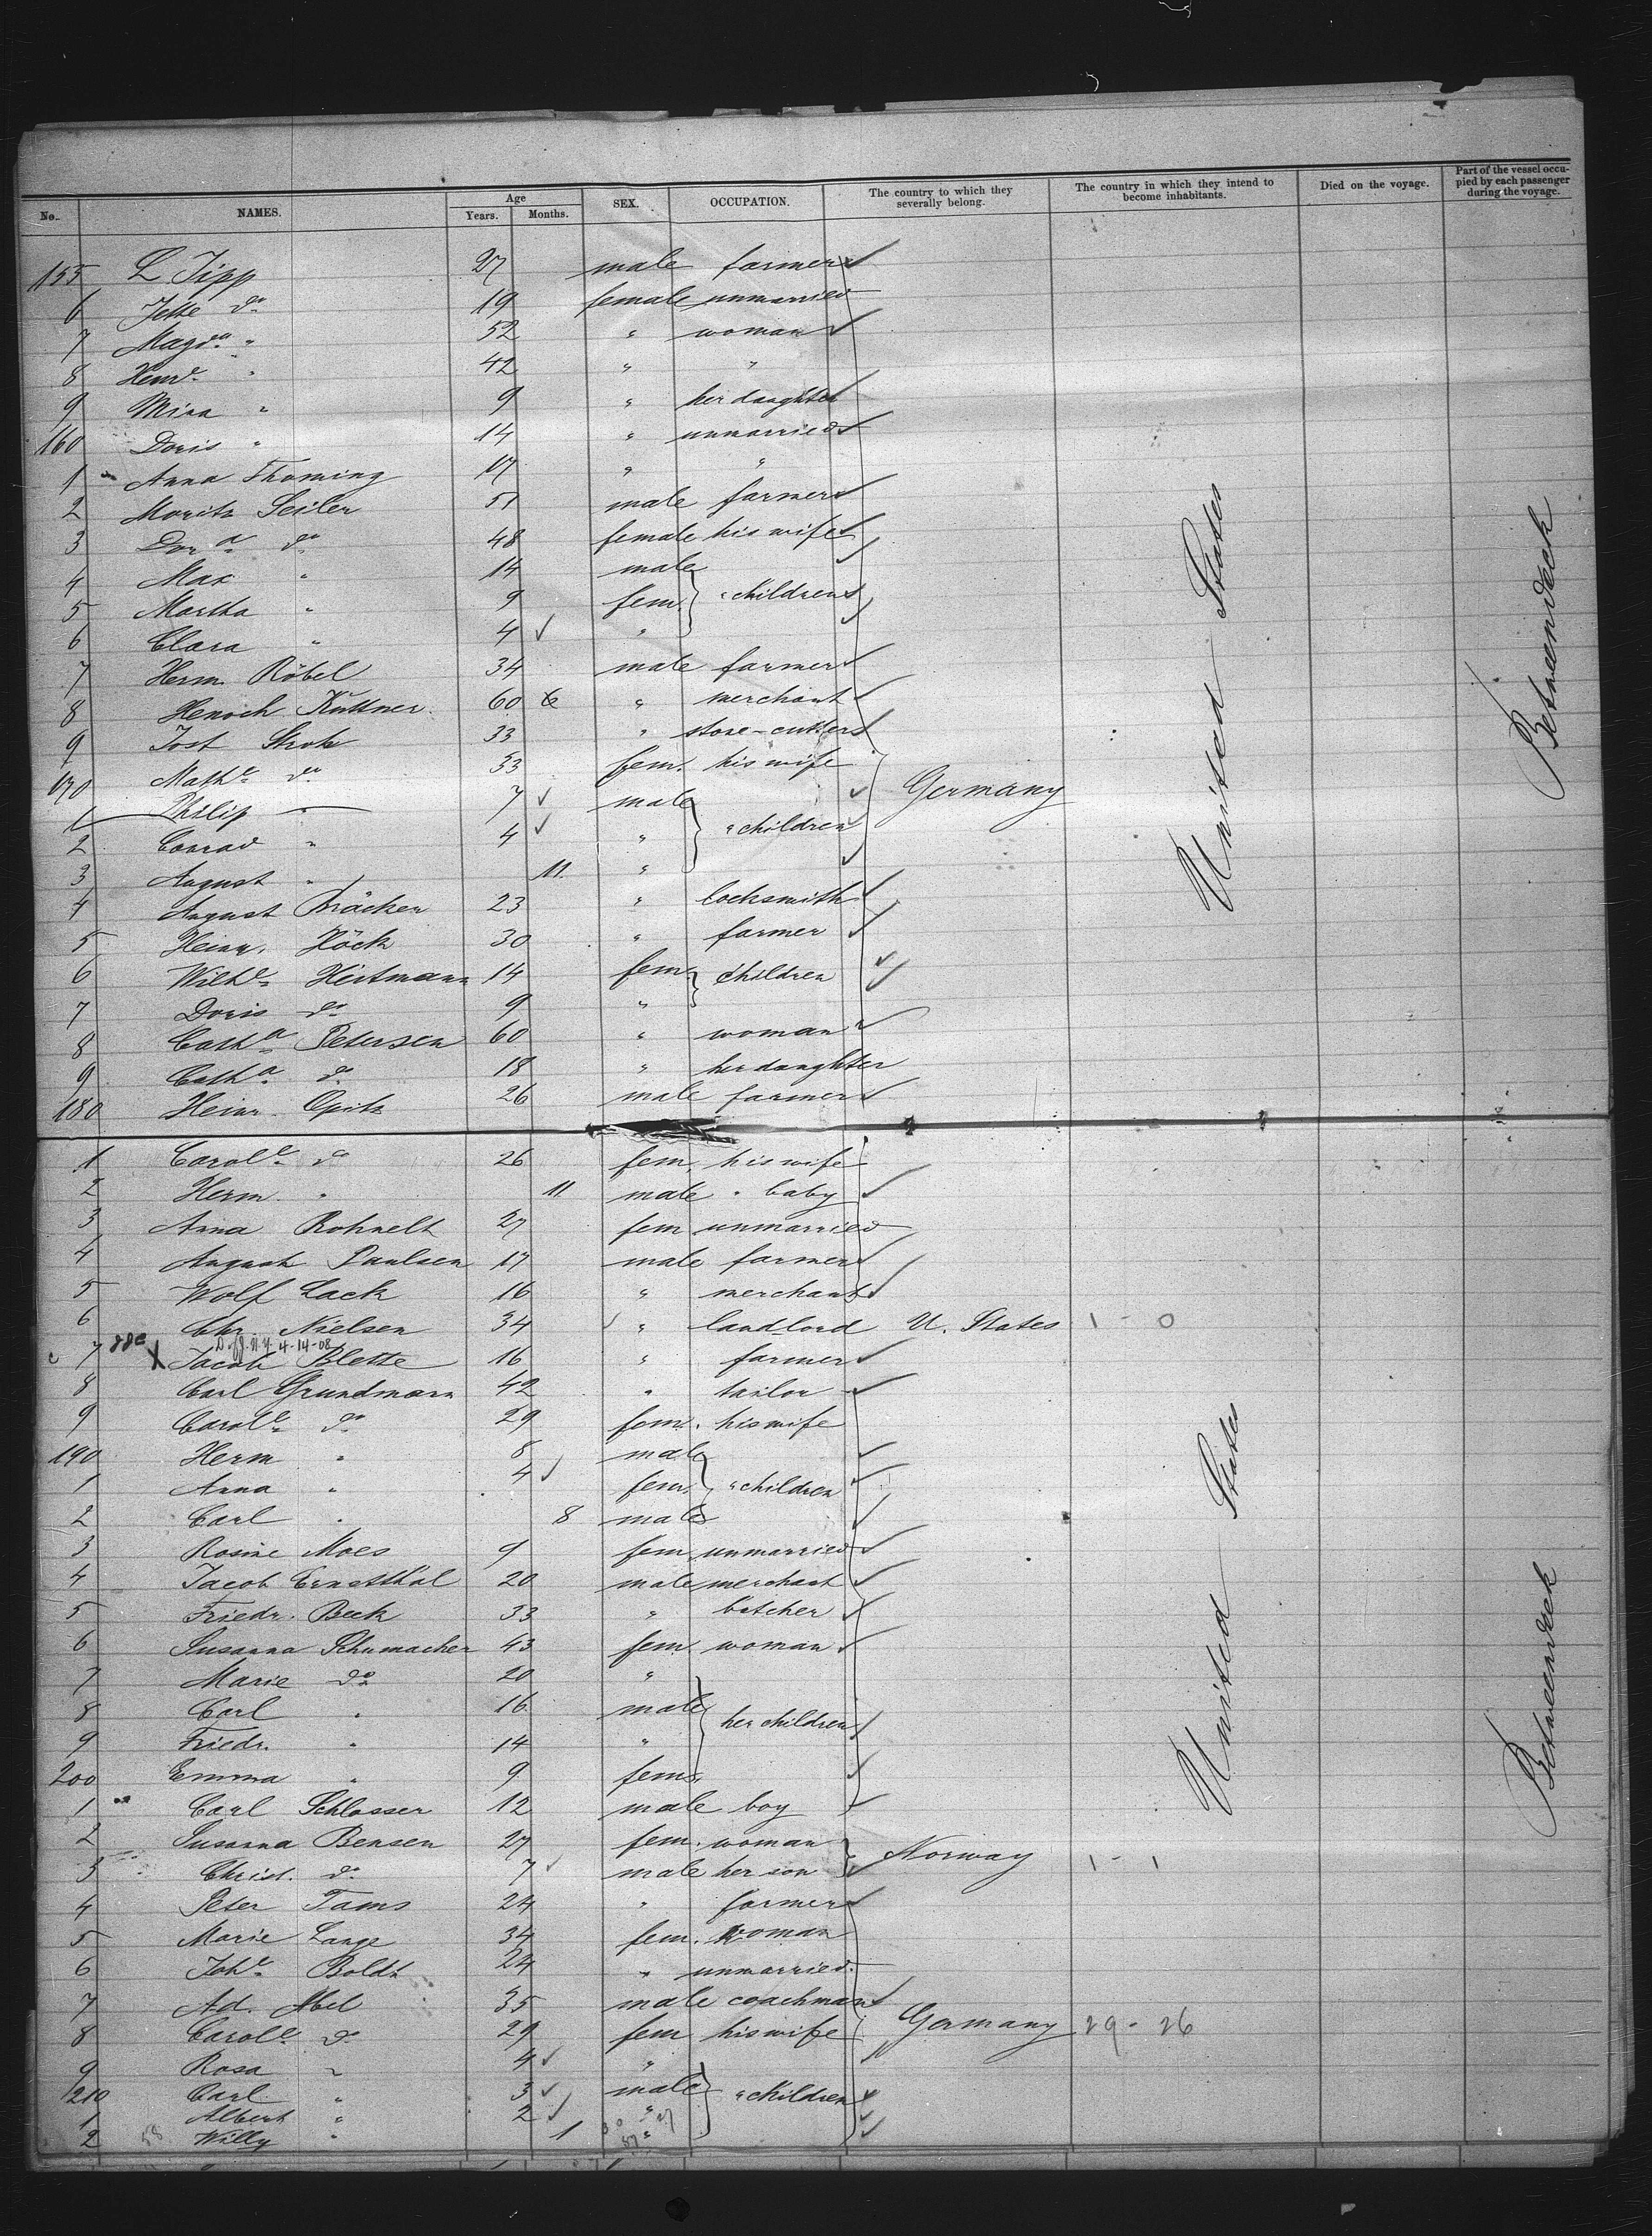 No. NAMES. Age Years. Months. SEX. OCCUPATION. The country to which they severally belong. The country in which they intend to become inhabitants. Died on the voyage. Part of the vessel occupied by each passenger during the voyage.
155 L Tipp 27 male farmer
6 Jette do 19 female unmarried
7 Magda " 52 " woman
8 Henre " 42 " "
9 Mina " 9 " her daughter
160 Doris " 14 " unmarried
1 Anna Thoming 17 " "
2 Moritz Seiler 51 male farmer
3 Dora do 48 female his wife
4 Max " 14 male
5 Martha " 9 fem. " children
6 Clara " 4 "
7 Herm. Röbel 34 male farmer
8 Henoch Kuttner 60 " merchant
9 Jost Stroh 33 " stone-cutter
170 Mathe do 33 fem. his wife
1 Philip " 7 male Germany
2 Conrad " 4 " " children
3 August " 11. "
4 August Bräcker 23 " locksmith
5 Heinr. Höck 30 " farmer
6 Wilhe Heitmann 14 fem. children
7 Doris do 9 "
8 Catha Petersen 60 " woman
9 Catha do 18 " her daughter
180 Heinr. Opitz 26 male farmer
United States
Betweendeck
1 Carole do 26 fem. his wife
2 Herm. " 11. male " baby
3 Anna Rohnelt 27 fem unmarried
4 August Paulsen 17 male farmer
5 Wolf Lack 16 " merchant
6 Chr. Nielsen 34 " landlord U. States 1 - 0
4-14-08
7 X Jacob Blette 16 " farmer
8 Carl Grundmann 42 " tailor
9 Carole do 29 fem. his wife
190 Herm " 8 male
1 Anna " 4 fem. " children
2 Carl " 8 male
3 Rosine Moes 9 fem. unmarried
4 Jacob Ernstthal 20 male merchant
5 Friedr. Beck 33 " butcher
6 Susanna Schumacher 43 fem. woman
7 Marie do 20 "
8 Carl " 16 male her children
9 Friedr. " 14 "
200 Emma " 9 fem.
1 Carl Schlosser 12 male boy
2 Susanna Bensen 27 fem. woman Norway 1 - 1
3 Christ. do 7 male her son
4 Peter Tams 24 " farmer
5 Marie Lange 34 fem. woman
6 Johe Boldt 24 " unmarried
7 Ad. Abel 35 male coachman
8 Carole do 29 fem his wife Germany 29 - 26
9 Rosa " 4 "
210 Carl " 3 male " children
1 Albert " 2 "
2 Willy " 1 "
United States
Betweendeck